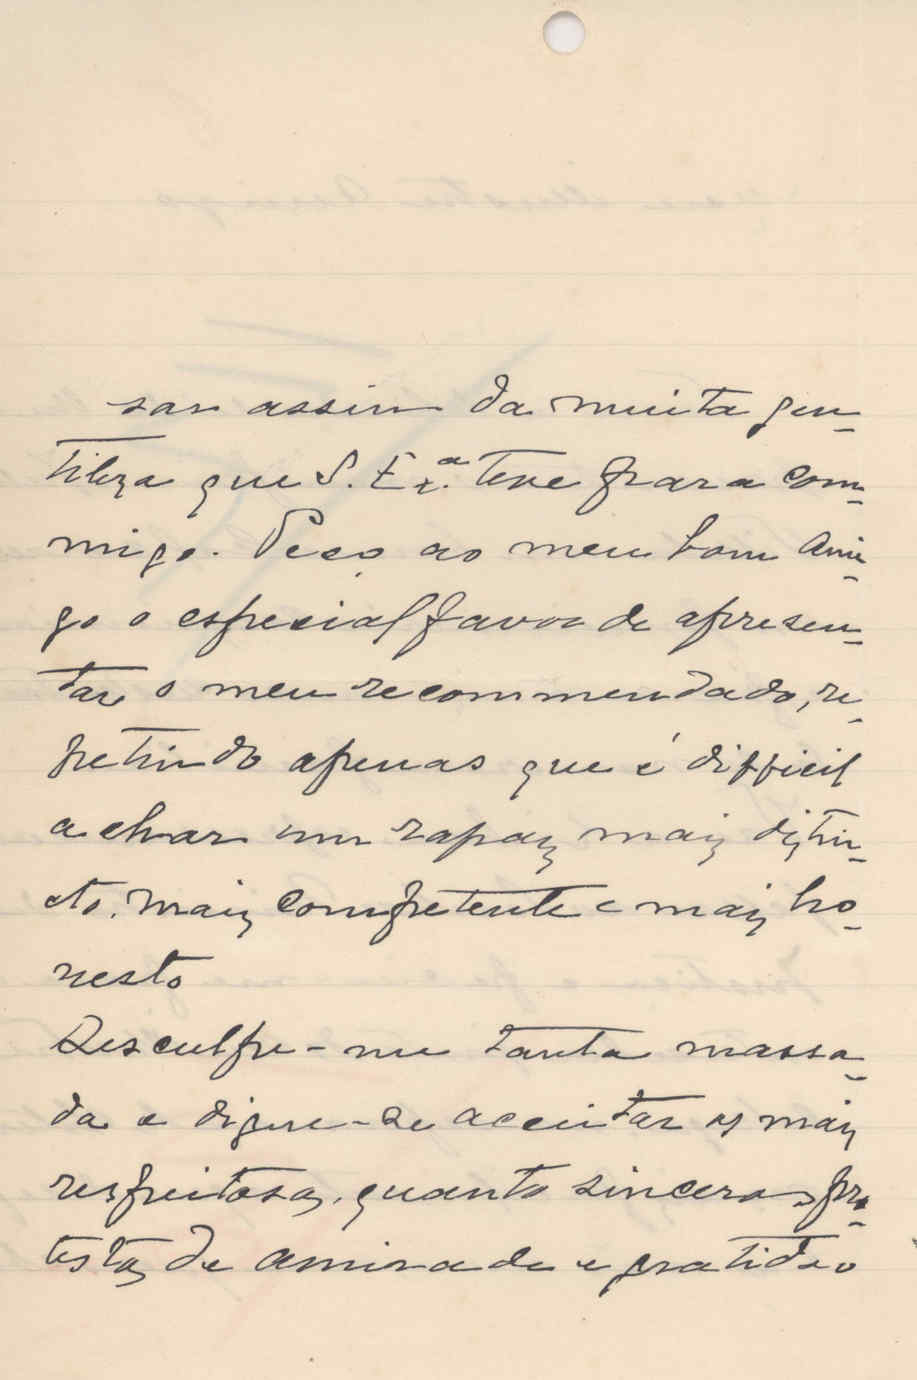 sar assim da muita gen-
tileza que S. Ex.ª teve para com-
migo. Peço ao meu bom ami-
go o especial favor de apresen-
tar o meu recommendado, re-
petindo apenas que é difficil
achar um rapaz mais distin-
cto, mais competente e mais ho-
nesto
Desculpe-me tanta massa-
da e digne-se acceitar os mais
respeitosos, quanto sinceros pro-
testos de amisade e gratidão